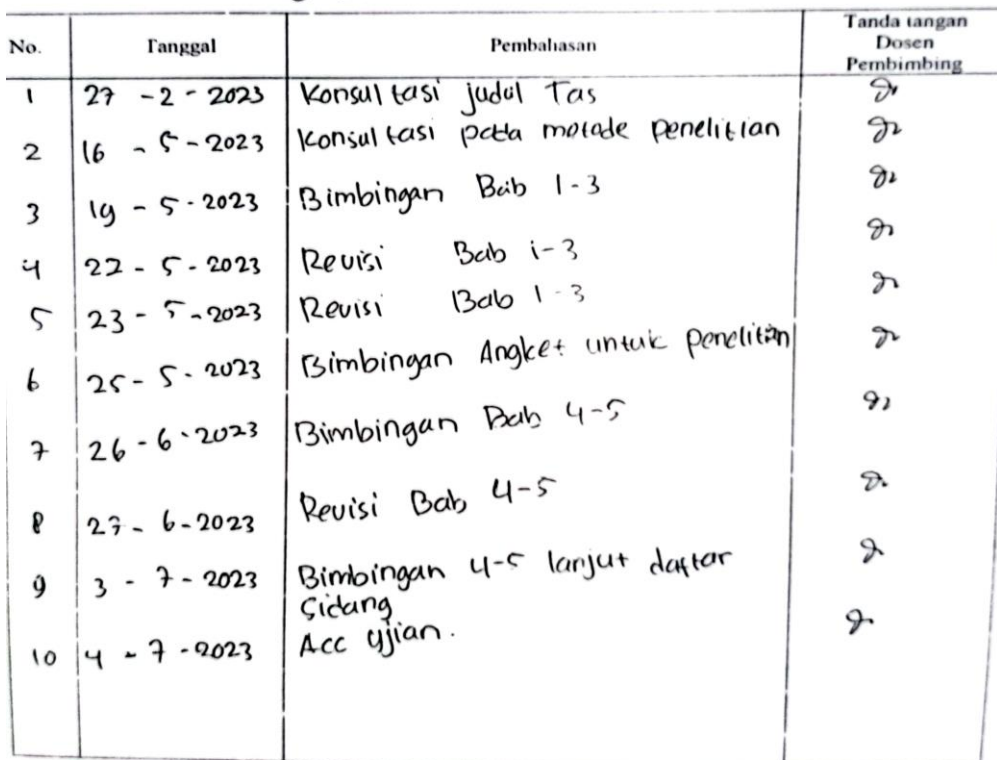 No. Tanggal Pembahasan Tanda tangan
Dosen
Pembimbing
1 27 - 2 - 2023 Konsultasi judul Tas
2 16 - 5 - 2023 Konsultasi pada metode penelitian
3 19 - 5 - 2023 Bimbingan Bab 1-3
4 22 - 5 - 2023 Revisi Bab 1-3
5 23 - 5 - 2023 Revisi Bab 1-3
6 25 - 5 - 2023 Bimbingan Angket untuk penelitian
7 26 - 6 - 2023 Bimbingan Bab 4-5
8 27 - 6 - 2023 Revisi Bab 4-5
9 3 - 7 - 2023 Bimbingan 4-5 lanjut daftar
Sidang
10 4 - 7 - 2023 Acc ujian.